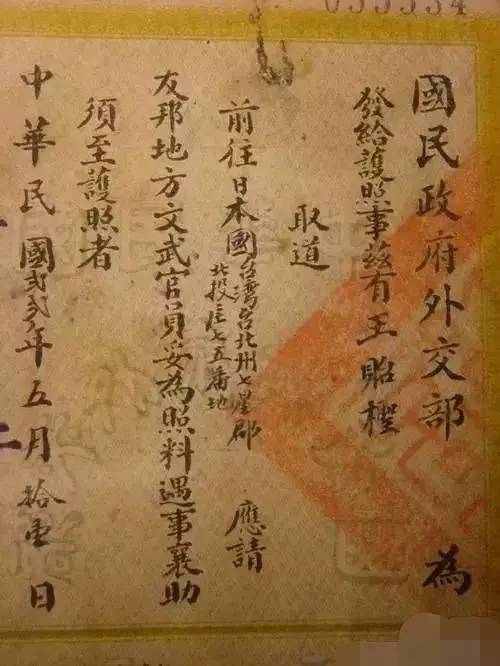 033334
國民政府外交部　為
發給護照事茲有王貽檉
取道
前往日本國台灣台北州七星郡
北投庄七五番地　應請
友邦地方文武官員妥為照料遇事襄助
須至護照者
中華民國貳貳年五月拾壹日